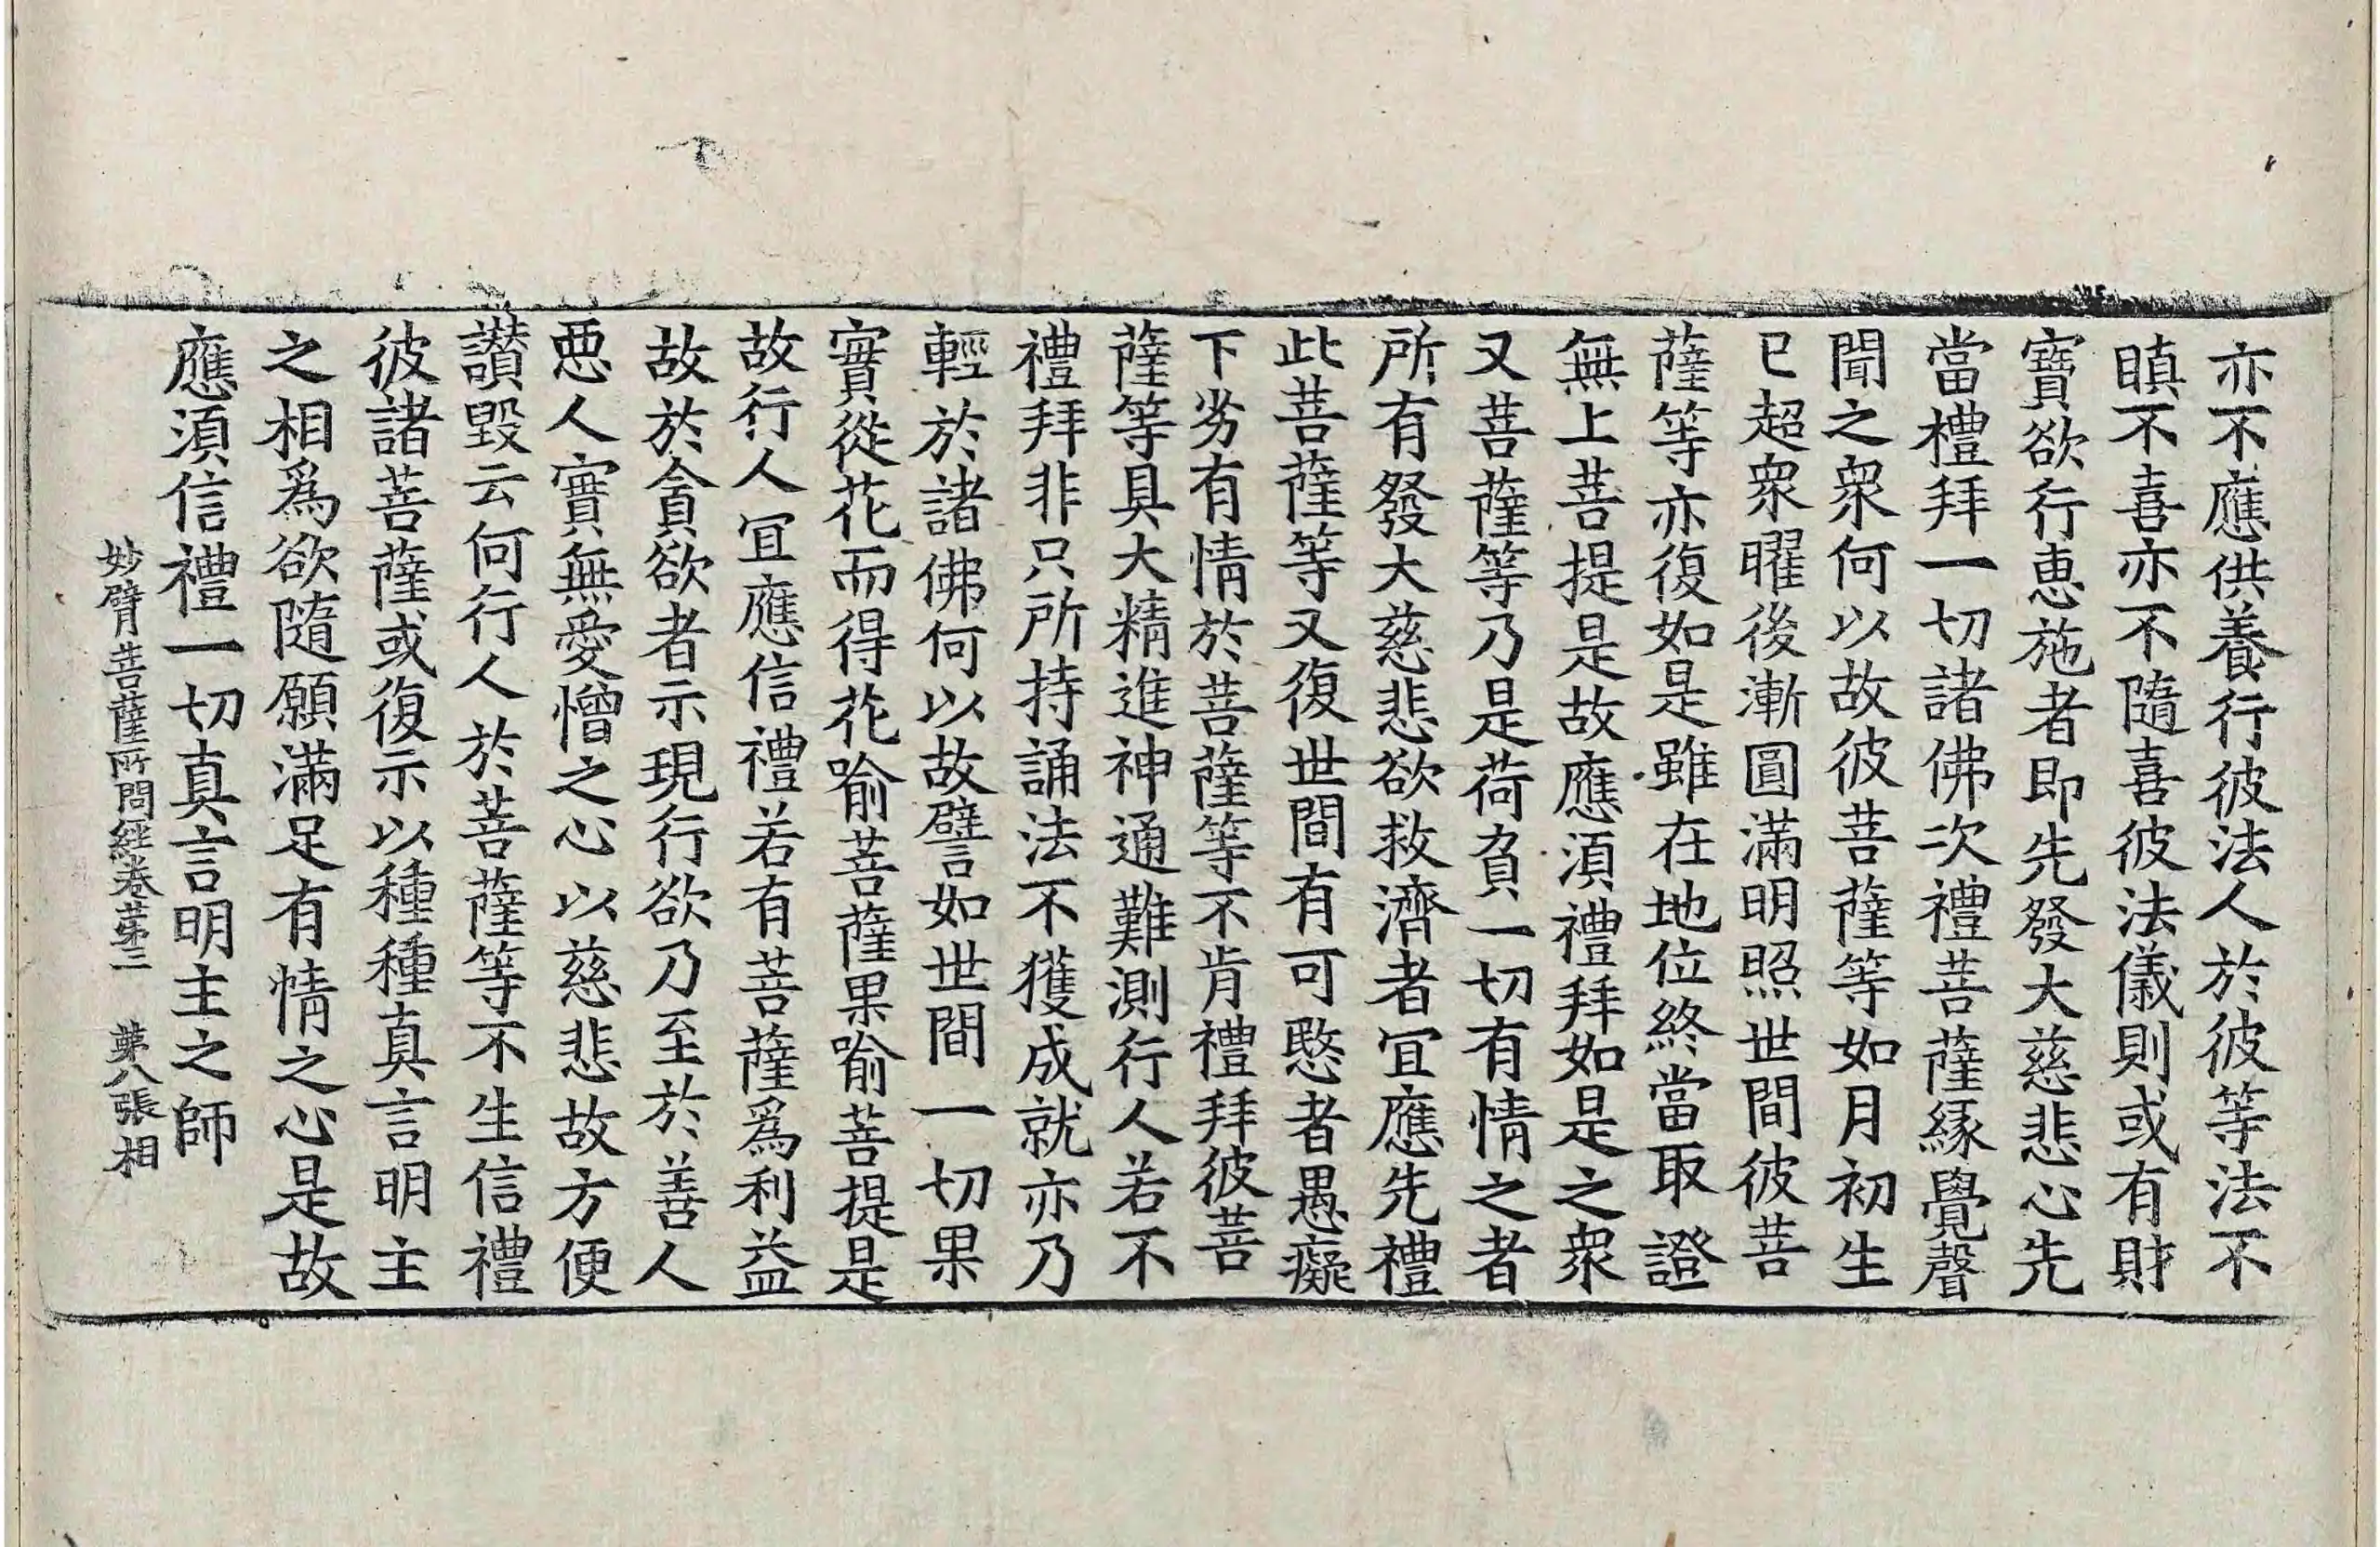 亦不應供養行彼法人於彼等法不
瞋不喜亦不隨喜彼法儀則或有財
寶欲行恵施者即先發大慈悲心先
當禮拜一切諸佛次禮菩薩緣覺聲
聞之衆何以故彼菩薩等如月初生
已超衆曜後漸圓滿明照世間彼菩
薩等亦復如是雖在地位終當取證
無上菩提是故應須禮拜如是之衆
又菩薩等乃是荷負一切有情之者
所有發大慈悲欲救濟者冝應先禮
此菩薩等又復世間有可愍者愚癡
下劣有情於菩薩等不肯禮拜彼菩
薩等具大精進神通難測行人若不
禮拜非只所持誦法不獲成就亦乃
輕於諸佛何以故譬如世間一切果
實從花而得花喻菩薩果喻菩提是
故行人冝應信禮若有菩薩爲利益
故於貪欲者示現行欲乃至於善人
惡人實無愛憎之心以慈悲故方便
讃毀云何行人於菩薩等不生信禮
彼諸菩薩或復示以種種真言明主
之相爲欲隨願滿足有情之心是故
應須信禮一切真言明主之師
妙臂菩薩所問經卷苐三 苐八張 相